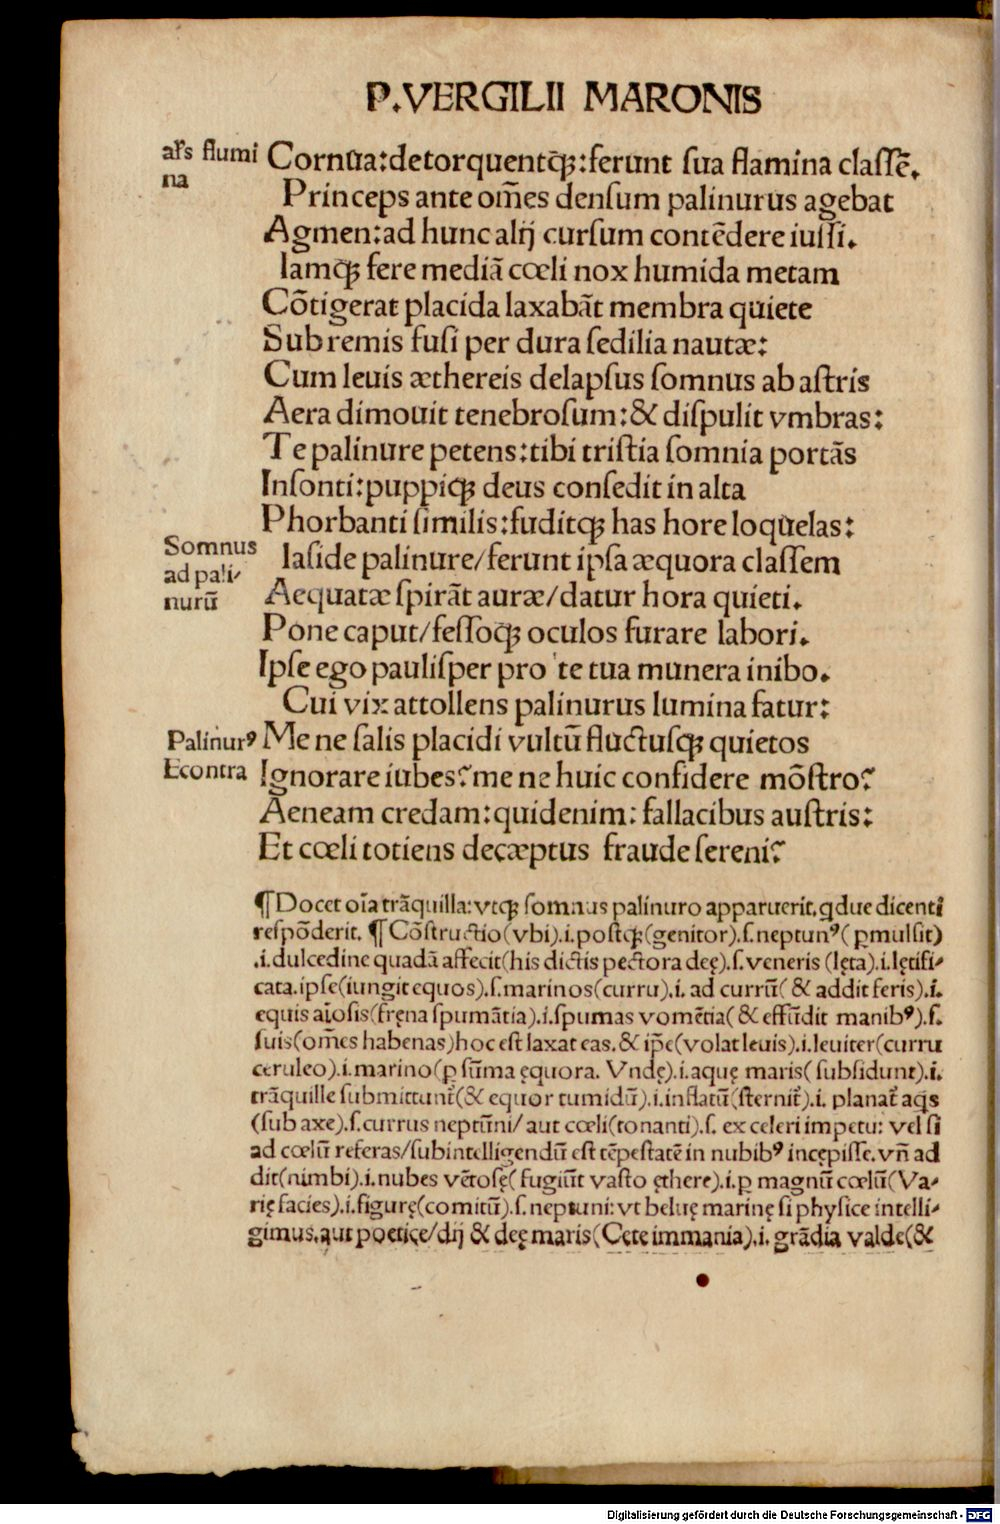 P.VERGILII MARONIS
al's flumi
na
Cornua:detorquentq̃ꝫ:ferunt sua flamina classẽ.
Princeps ante om̃es densum palinurus agebat
Agmen:ad hunc alij cursum contẽdere iussi.
Iamq̃ꝫ fere mediã cœli nox humida metam
Cõtigerat placida laxabãt membra quiete
Sub remis fusi per dura sedilia nautæ:
Cum leuis æthereis delapsus somnus ab astris
Aera dimouit tenebrosum:& dispulit vmbras:
Te palinure petens:tibi tristia somnia portãs
Insonti:puppiq̃ꝫ deus consedit in alta
Phorbanti similis:fuditqꝫ has hore loquelas:
Somnus
ad pali/
nurũ
Iaside palinure/ferunt ipsa æquora classem
Aequatæ spirãt auræ/datur hora quieti.
Pone caput/fessoq̃ꝫ oculos furare labori.
Ipse ego paulisper pro te tua munera inibo.
Cui vix attollens palinurus lumina fatur:
Palinurꝰ
Econtra
Me ne salis placidi vultũ fluctusqꝫ quietos
Ignorare iubes?me ne huic confidere mõstro?
Aeneam credam:quid enim: fallacibus austris:
Et cœli totiens decæptus fraude sereni?
¶Docet oĩa trãquilla:vtqꝫ somnus palinuro apparuerit.qdue dicenti
respõderit. ¶Cõstructio(vbi).i.postqꝫ(genitor).s.neptunꝰ(ꝑmulsit)
.i.dulcedine quadã affecit(his dictis pectora deę).s.veneris (lęta).i.lętifi/
cata.ipse(iungit equos).s.marinos(curru).i. ad currũ(& addit feris).i.
equis aĩosis(fręna spumãtia).i.spumas vomẽtia(& effũdit manibꝰ).s.
suis(om̃es habenas)hoc est laxat eas.& ip̃e(volat leuis).i.leuiter(curru
ceruleo).i.marino(ꝑ sũma ęquora. Vndę).i.aquę maris(subsidunt).i.
trãquille submittunt̃(& equor tumidũ).i.inflatũ(sternit̃).i. planat̃ aq̃s
(sub axe).s.currus neptũni/ aut cœli(tonanti).s. ex celeri impetu: vel si
ad cœlũ referas/subintelligendũ est tẽpestatẽ in nubibꝰ incępisse.vñ ad
dit(nimbi).i.nubes vẽtosę(fugiũt vasto ęthere).i.ꝑ magnũ cœlũ(Va/
rię facies).i.figurę(comitũ).s.neptuni:vt beluę marinę si physice intelli/
gimus.aut poetice/dij & deę maris(Cęte immania).i. grãdia valde(&
Digitalisierung gefördert durch die Deutsche Forschungsgemeinschaft - DFG